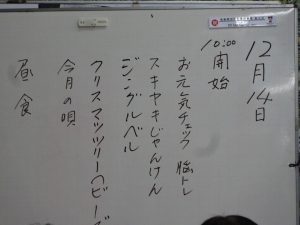 12月14日
10:00開始
お元気チェック 脳トレ
スキヤキじゃんけん
ジングルベル
クリスマッツリー(ビーズ
今月の唄
昼食